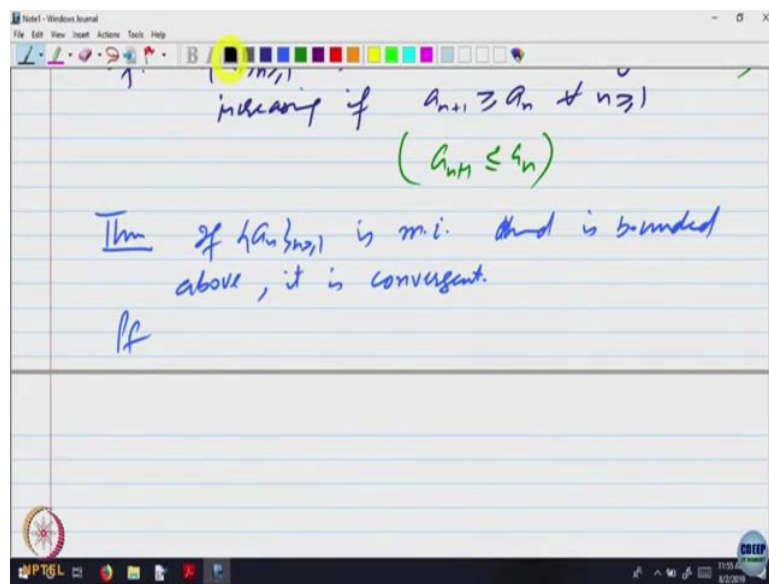 Note1 - Windows Journal
File Edit View Insert Actions Tools Help
increasing if a_{n+1} ≥ a_n ∀ n ≥ 1
(a_{n+1} ≤ a_n)
Thm If {a_n}_{n≥1} is m.i. and is bounded
above, it is convergent.
Pf
NPTEL
CDEEP
IIT BOMBAY
8/2/2019